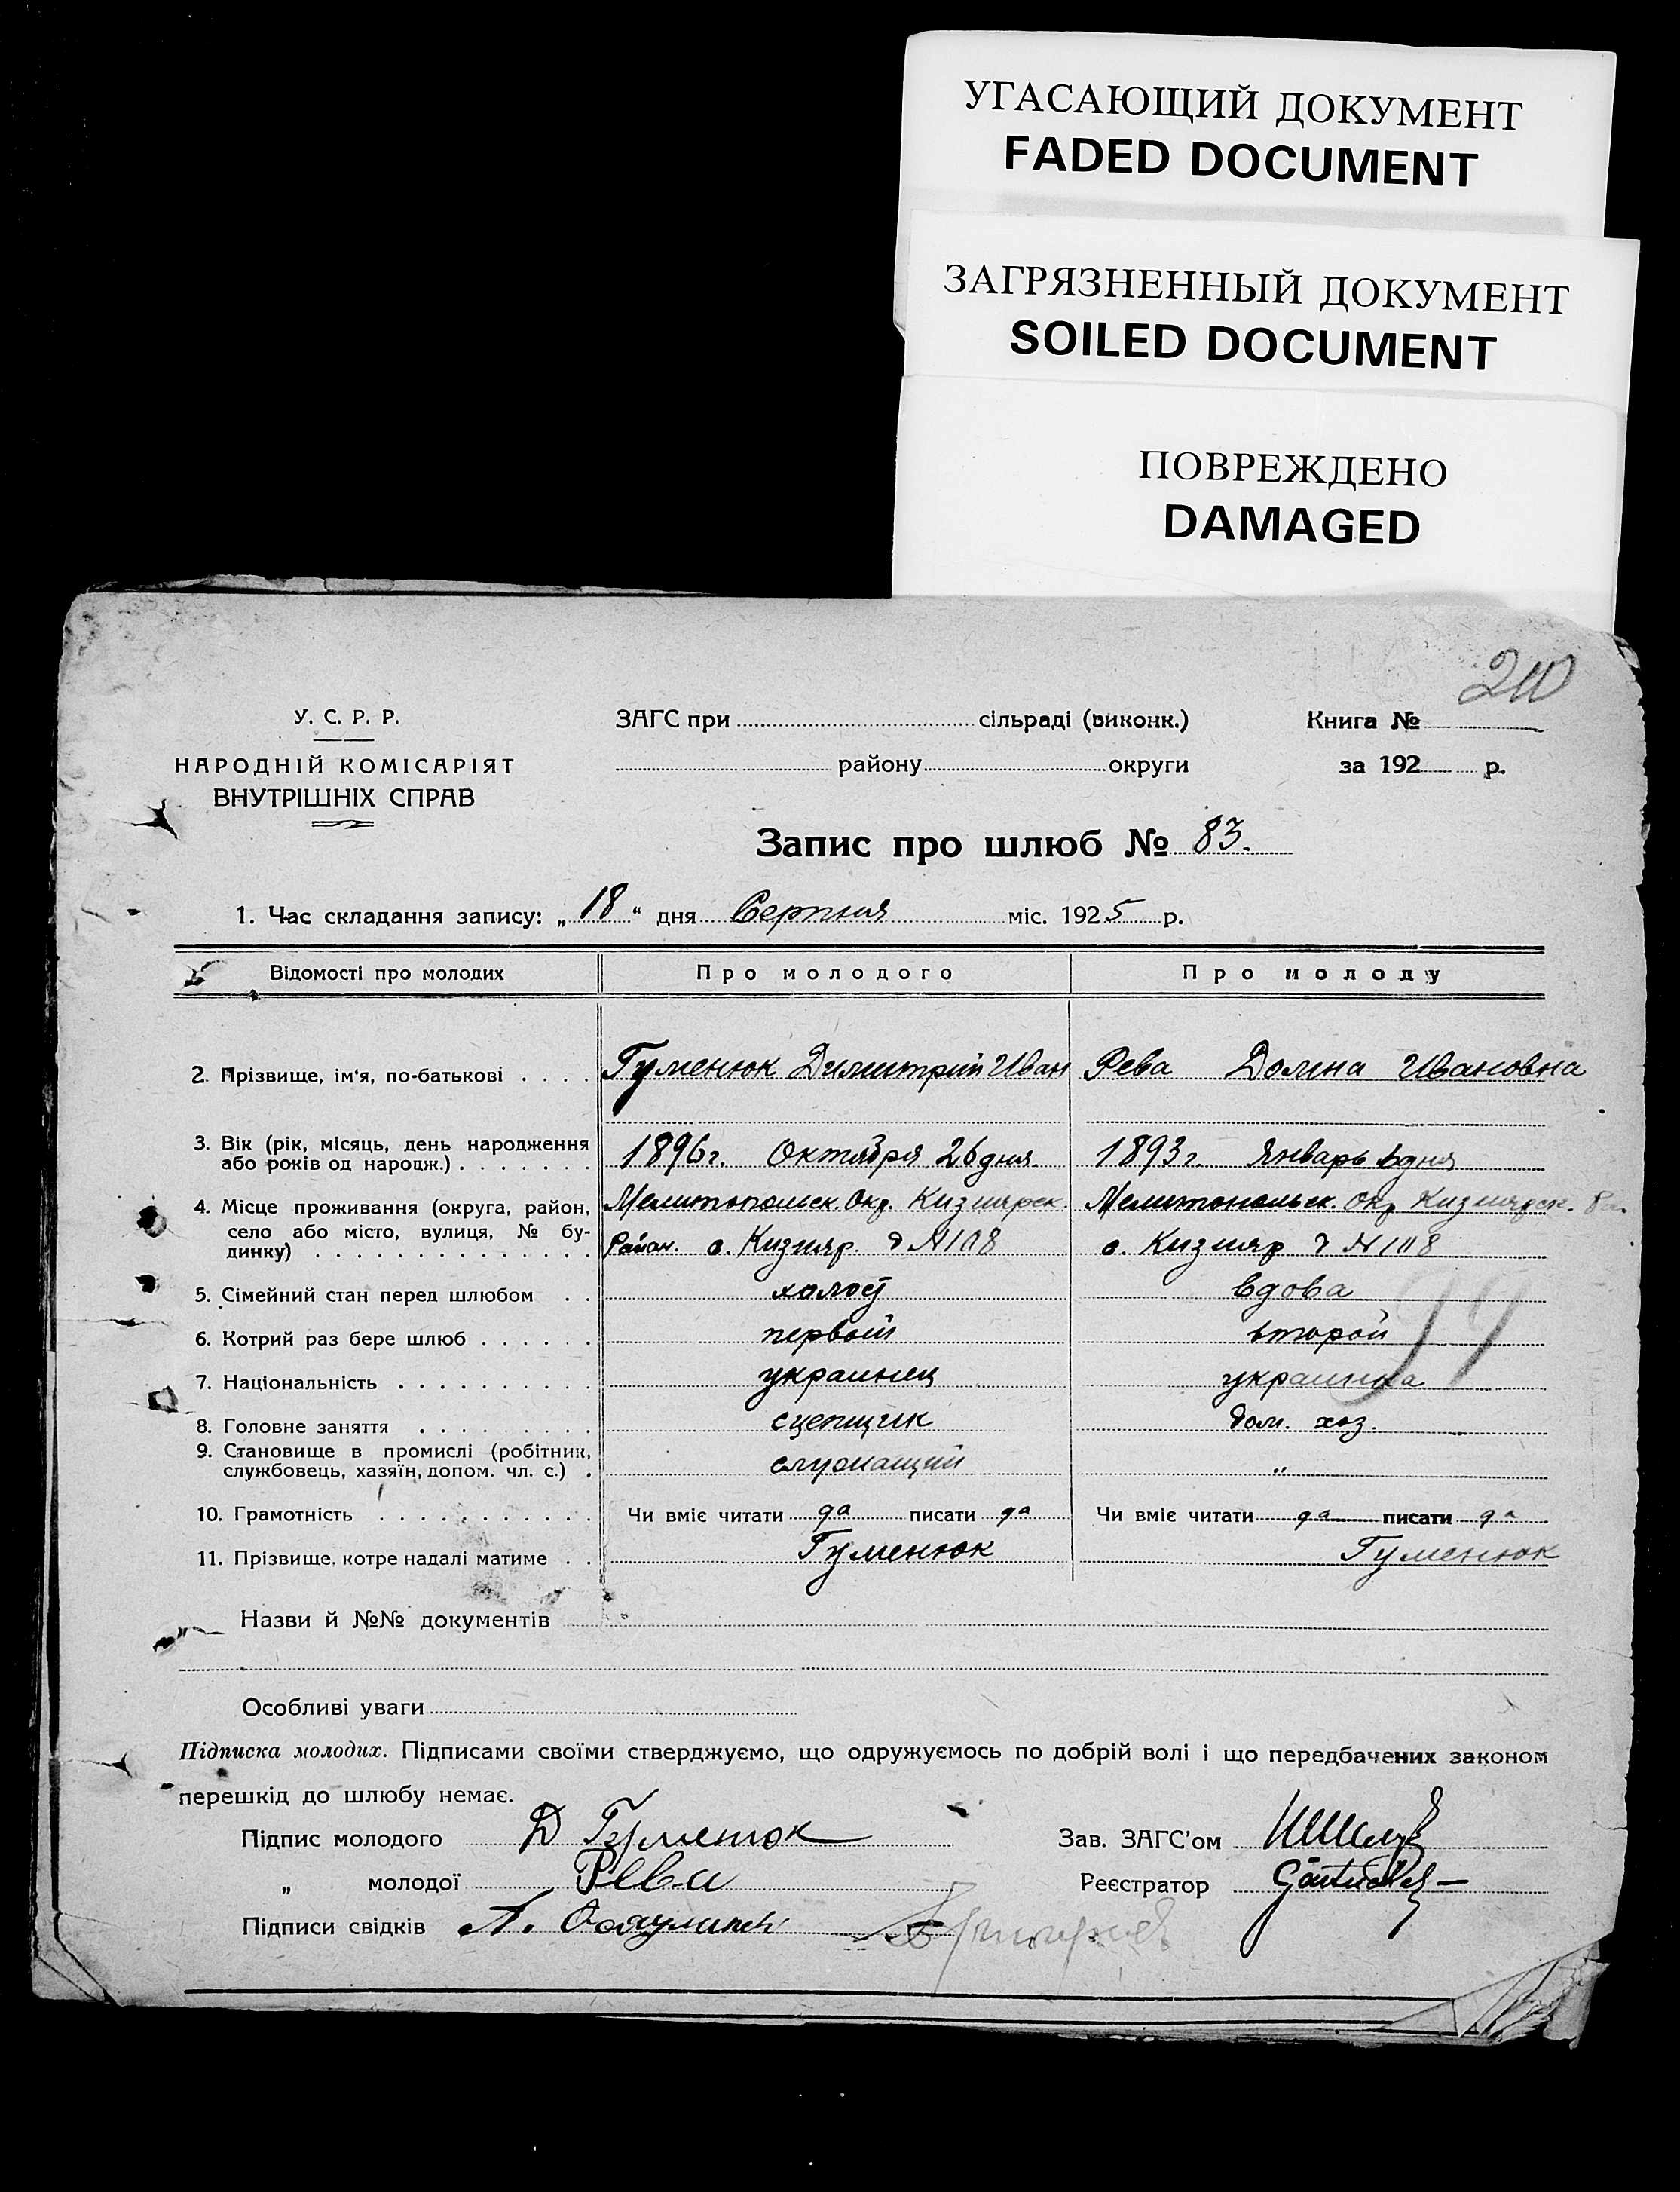 УГАСАЮЩИЙ ДОКУМЕНТ
FADED DOCUMENT
ЗАГРЯЗНЕННЫЙ ДОКУМЕНТ
SOILED DOCUMENT
ПОВРЕЖДЕНО
DAMAGED
У. С. Р. Р.
НАРОДНІЙ КОМІСАРІЯТ
ВНУТРІШНІХ СПРАВ
ЗАГС при сільраді (виконк.)
району округи
Книга №
за 192 р.
Запис про шлюб № 83.
1. Час складання запису: „18“ дня Серпня міс. 1925 р.
Відомості про молодих Про молодого Про молоду
2. Прізвище, ім'я, по-батькові . . . . Гуменюк Димитрий Иван Рева Домна Ивановна
3. Вік (рік, місяць, день народження
або років од народж.) . . . . . . . 1896г. Октября 26 дня. 1893г. Январь дня
4. Місце проживання (округа, район, Мелитопольск. Окр. Кизиярск. Мелитопольск. Окр Кизиярск.
село або місто, вулиця, № бу-
динку) . . . . . . . . . . . . . . Район. с. Кизияр. д №108 с. Кизияр д №108
5. Сімейний стан перед шлюбом . . холост вдова
6. Котрий раз бере шлюб . . . . . . первый второй
7. Національність . . . . . . . . . . украинец украинка
8. Головне заняття . . . . . . . . . сцепщик дом. хоз.
9. Становище в промислі (робітник,
службовець, хазяїн, допом. чл. с.) . служащий "
10. Грамотність . . . . . . . . . . . Чи вміє читати да писати да Чи вміє читати да писати да
11. Прізвище, котре надалі матиме . . Гуменюк Гуменюк
Назви й №№ документів
Особливі уваги
Підписка молодих. Підписами своїми стверджуємо, що одружуємось по добрій волі і що передбачених законом
перешкід до шлюбу немає.
Підпис молодого Д Гуменюк Зав. ЗАГС'ом
„ молодої Рева Реєстратор
Підписи свідків А.